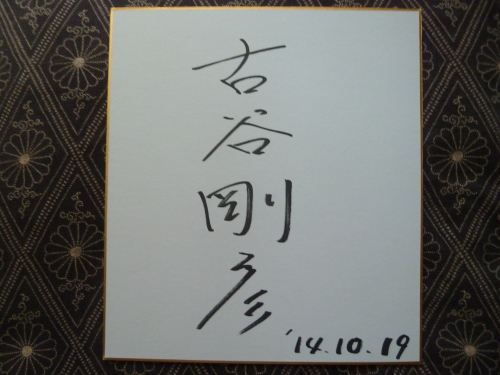 古谷剛彦
'14.10.19